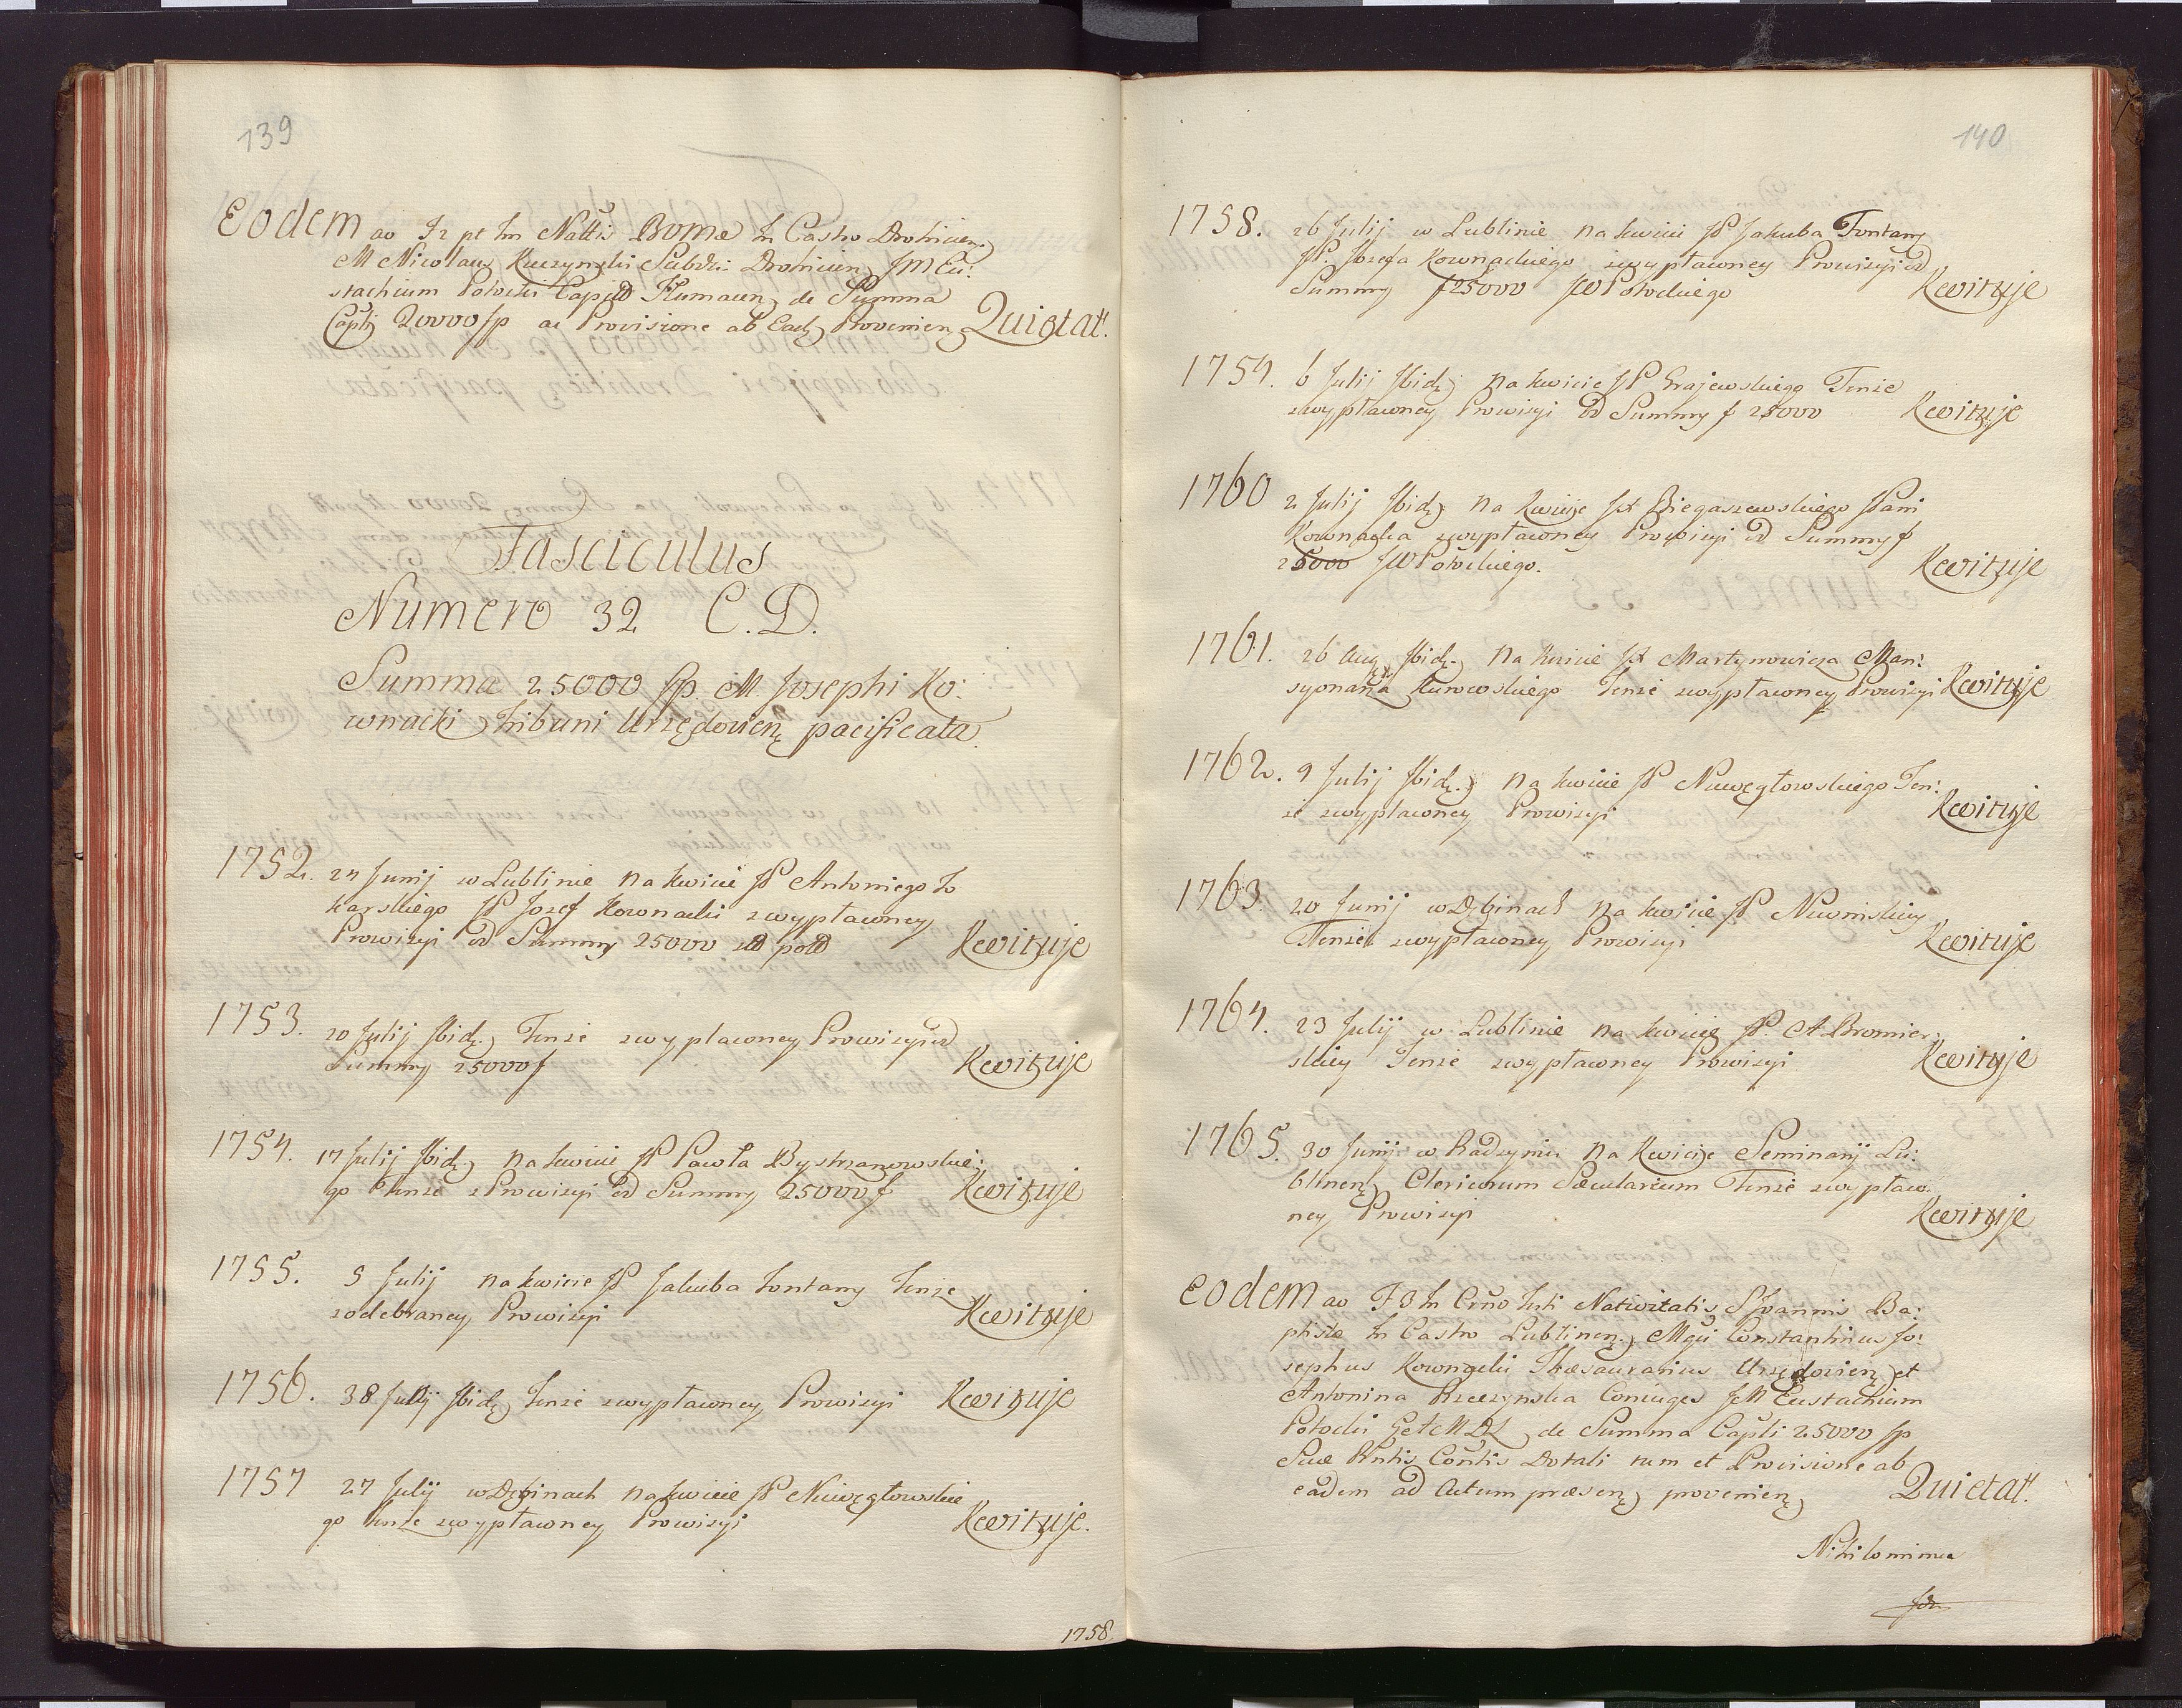 139
Eodem ao F2 pt fm Nattis BVMæ In Castro Drohicien
M Nicolaus Kuczynski Subdi: Drohicien JM Eu:
stachium Potocki Capit Tlumacen de Summa
Captlj 20000 fp ac Provisione ab Eadz Provenien Quietat.
Fasciculus
Numero 32 C.D.
Summa 25000 fp. M. Josephi Ko:
wnacki Tribuni Urzędovien pacificata
1752. 24 Junij w Lublinie na kwicie JP Antoniego To
karskiego JP Jozef Kownacki z wypławney
Prowizyi od Summy 25000 zł pol Kwituje
1753. 20 Julij Ibidz. Tenze z wyplawney Prowizyi od
Summy 25000 f Kwituje
1754. 17 Julij Ibidz na kwicie JP Pawła Bystrzanowskie:
go Tenze z Prowizyi od Summy 25000 f Kwituje
1755. 5 Julij na kwicie JP Jakuba Fontany Tenze
z odebraney Prowizyi Kwituje
1756. 38 Julij Ibidz Tenze z wypławney Prowizyi Kwituje
1757 27 Julij w Dębinach na kwicie JP Niwęgłowskie
go Tenze z wypławney Prowizyi Kwituje.
1758.
140
1758. 26 Julij w Lublinie na kwicie JP Jakuba Fontany
JP. Jozefa Kownackiego z wypławney Prowizyi od
Summy f 25000 JW Potockiego Kwituje
1759. 6 Julij Ibidz na kwicie JP Grajewskiego Tenze
z wypławney Prowizyi od Summy f 25000 Kwituje
1760 2 Julij Ibidz na Kwicie JX Biegaszewskiego JPani
Kownacka z wypławney Prowizyi od Summy f
25000 JW Potockiego. Kwituje
1761. 26 Aug Ibidz. na kwicie JX Martynowicza Man:
syonarza Kurowskiego Tenze z wypławney Prowizyi Kwituje
1762. 9 Julij Ibidz. na kwicie JP Niwęgłowskiego Ten:
ze z wypławney Prowizyi Kwituje
1763. 20 Junij w Dębinach na kwicie JP Niwinskiey
Tenze z wypławney Prowizyi Kwituje
1764. 23 Julij w Lublinie na kwicie JP A Bromier:
skiey Tenze z wypławney Prowizyi Kwituje
1765. 30 Junij w Radzyniu na Kwicie Seminarij Lu:
blinen Clericorum Sæcularium Tenze z wypław:
ney Prowizyi Kwituje
Eodem ao F 3 In Crno Festi Nativitatis S Joannis Ba:
ptistæ In Castro Lublinen. Mgci Constantinus Jo:
sephus Kownacki Thæsaurarius Urzędovien et
Antonina Rzeczynska Coniuges JM Eustachium
Potocki G Art M D L de Summa Captli 25000 fp
Suæ Rntis Contis Dotali tum et Provisione ab
eadem ad Actum præsenz provenienz Quietat.
Nihilominus